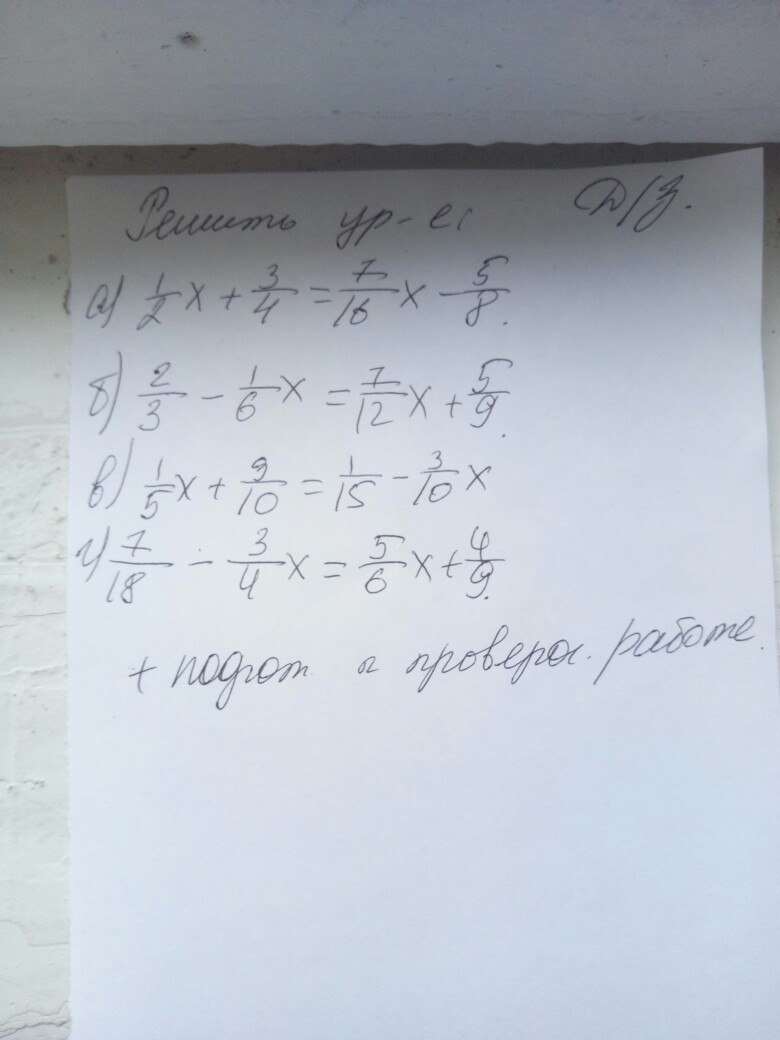 Решить ур-е: Д/З.
а) 1/2 x + 3/4 = 7/16 x - 5/8.
б) 2/3 - 1/6 x = 7/12 x + 5/9.
в) 1/5 x + 9/10 = 1/15 - 3/10 x
г) 7/18 - 3/4 x = 5/6 x + 4/9.
+ подгот к провероч. работе.